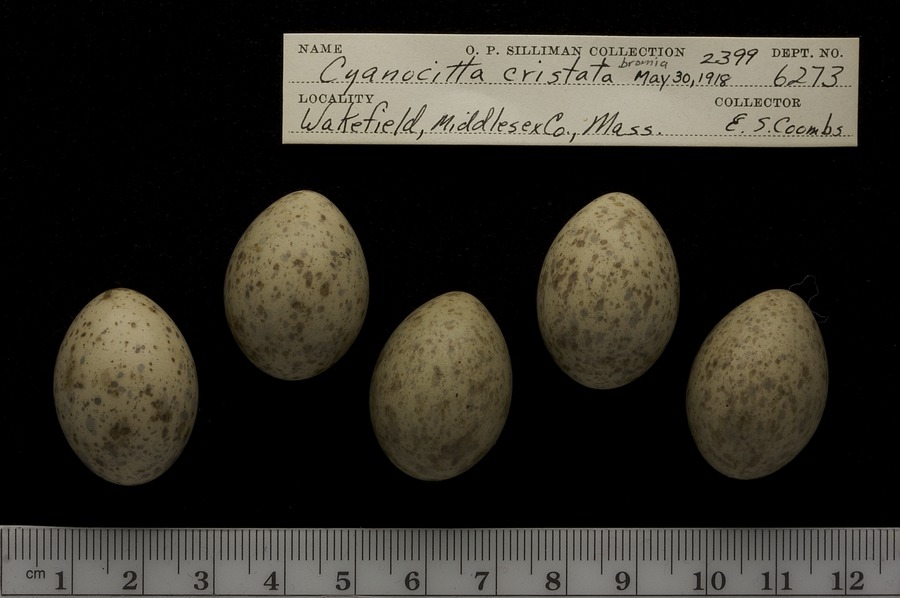 NAME O. P. SILLIMAN COLLECTION 2399 DEPT. NO.
Cyanocitta cristata bromia May 30, 1918 6273
LOCALITY COLLECTOR
Wakefield, Middlesex Co., Mass. E. S. Coombs
cm 1 2 3 4 5 6 7 8 9 10 11 12